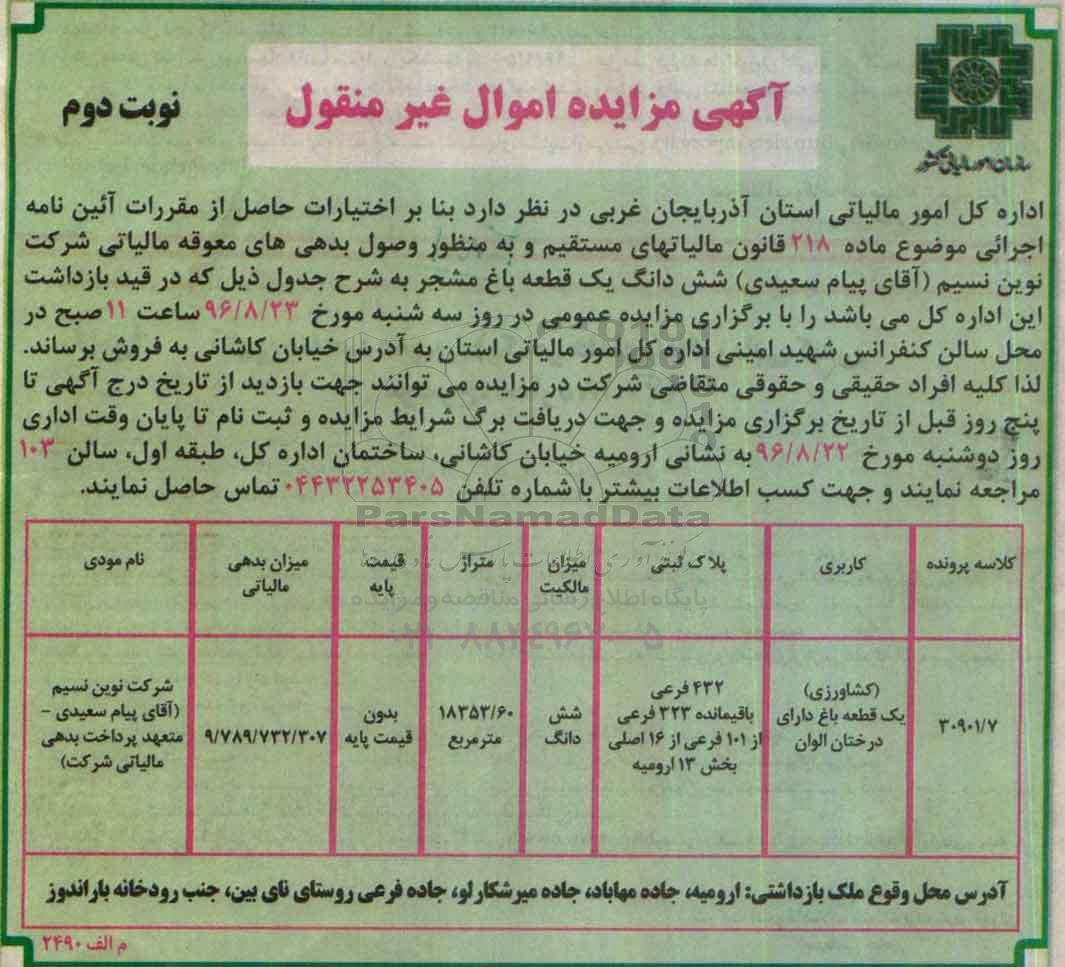 سازمان امور مالیاتی کشور
آگهی مزایده اموال غیر منقول
نوبت دوم
اداره کل امور مالیاتی استان آذربایجان غربی در نظر دارد بنا بر اختیارات حاصل از مقررات آئین نامه
اجرائی موضوع ماده ۲۱۸ قانون مالیاتهای مستقیم و به منظور وصول بدهی های معوقه مالیاتی شرکت
نوین نسیم (آقای پیام سعیدی) شش دانگ یک قطعه باغ مشجر به شرح جدول ذیل که در قید بازداشت
این اداره کل می باشد را با برگزاری مزایده عمومی در روز سه شنبه مورخ ۹۶/۸/۲۳ ساعت ۱۱ صبح در
محل سالن کنفرانس شهید امینی اداره کل امور مالیاتی استان به آدرس خیابان کاشانی به فروش برساند.
لذا کلیه افراد حقیقی و حقوقی متقاضی شرکت در مزایده می توانند جهت بازدید از تاریخ درج آگهی تا
پنج روز قبل از تاریخ برگزاری مزایده و جهت دریافت برگ شرایط مزایده و ثبت نام تا پایان وقت اداری
روز دوشنبه مورخ ۹۶/۸/۲۲ به نشانی ارومیه خیابان کاشانی، ساختمان اداره کل، طبقه اول، سالن ۱۰۳
مراجعه نمایند و جهت کسب اطلاعات بیشتر با شماره تلفن ۰۴۴۳۲۲۵۳۴۰۵ تماس حاصل نمایند.
ParsNamadData
پایگاه اطلاع رسانی مناقصه و مزایده
کلاسه پرونده
کاربری
پلاک ثبتی
میزان
مالکیت
متراژ
قیمت
پایه
میزان بدهی
مالیاتی
نام مودی
۳۰۹۰۱/۷
(کشاورزی)
یک قطعه باغ دارای
درختان الوان
۴۳۲ فرعی
باقیمانده ۳۲۳ فرعی
از ۱۰۱ فرعی از ۱۶ اصلی
بخش ۱۳ ارومیه
شش
دانگ
۱۸۳۵۳/۶۰
مترمربع
بدون
قیمت پایه
۹/۷۸۹/۷۳۲/۳۰۷
شرکت نوین نسیم
(آقای پیام سعیدی -
متعهد پرداخت بدهی
مالیاتی شرکت)
آدرس محل وقوع ملک بازداشتی: ارومیه، جاده مهاباد، جاده میرشکارلو، جاده فرعی روستای نای بین، جنب رودخانه باراندوز
م الف ۲۴۹۰